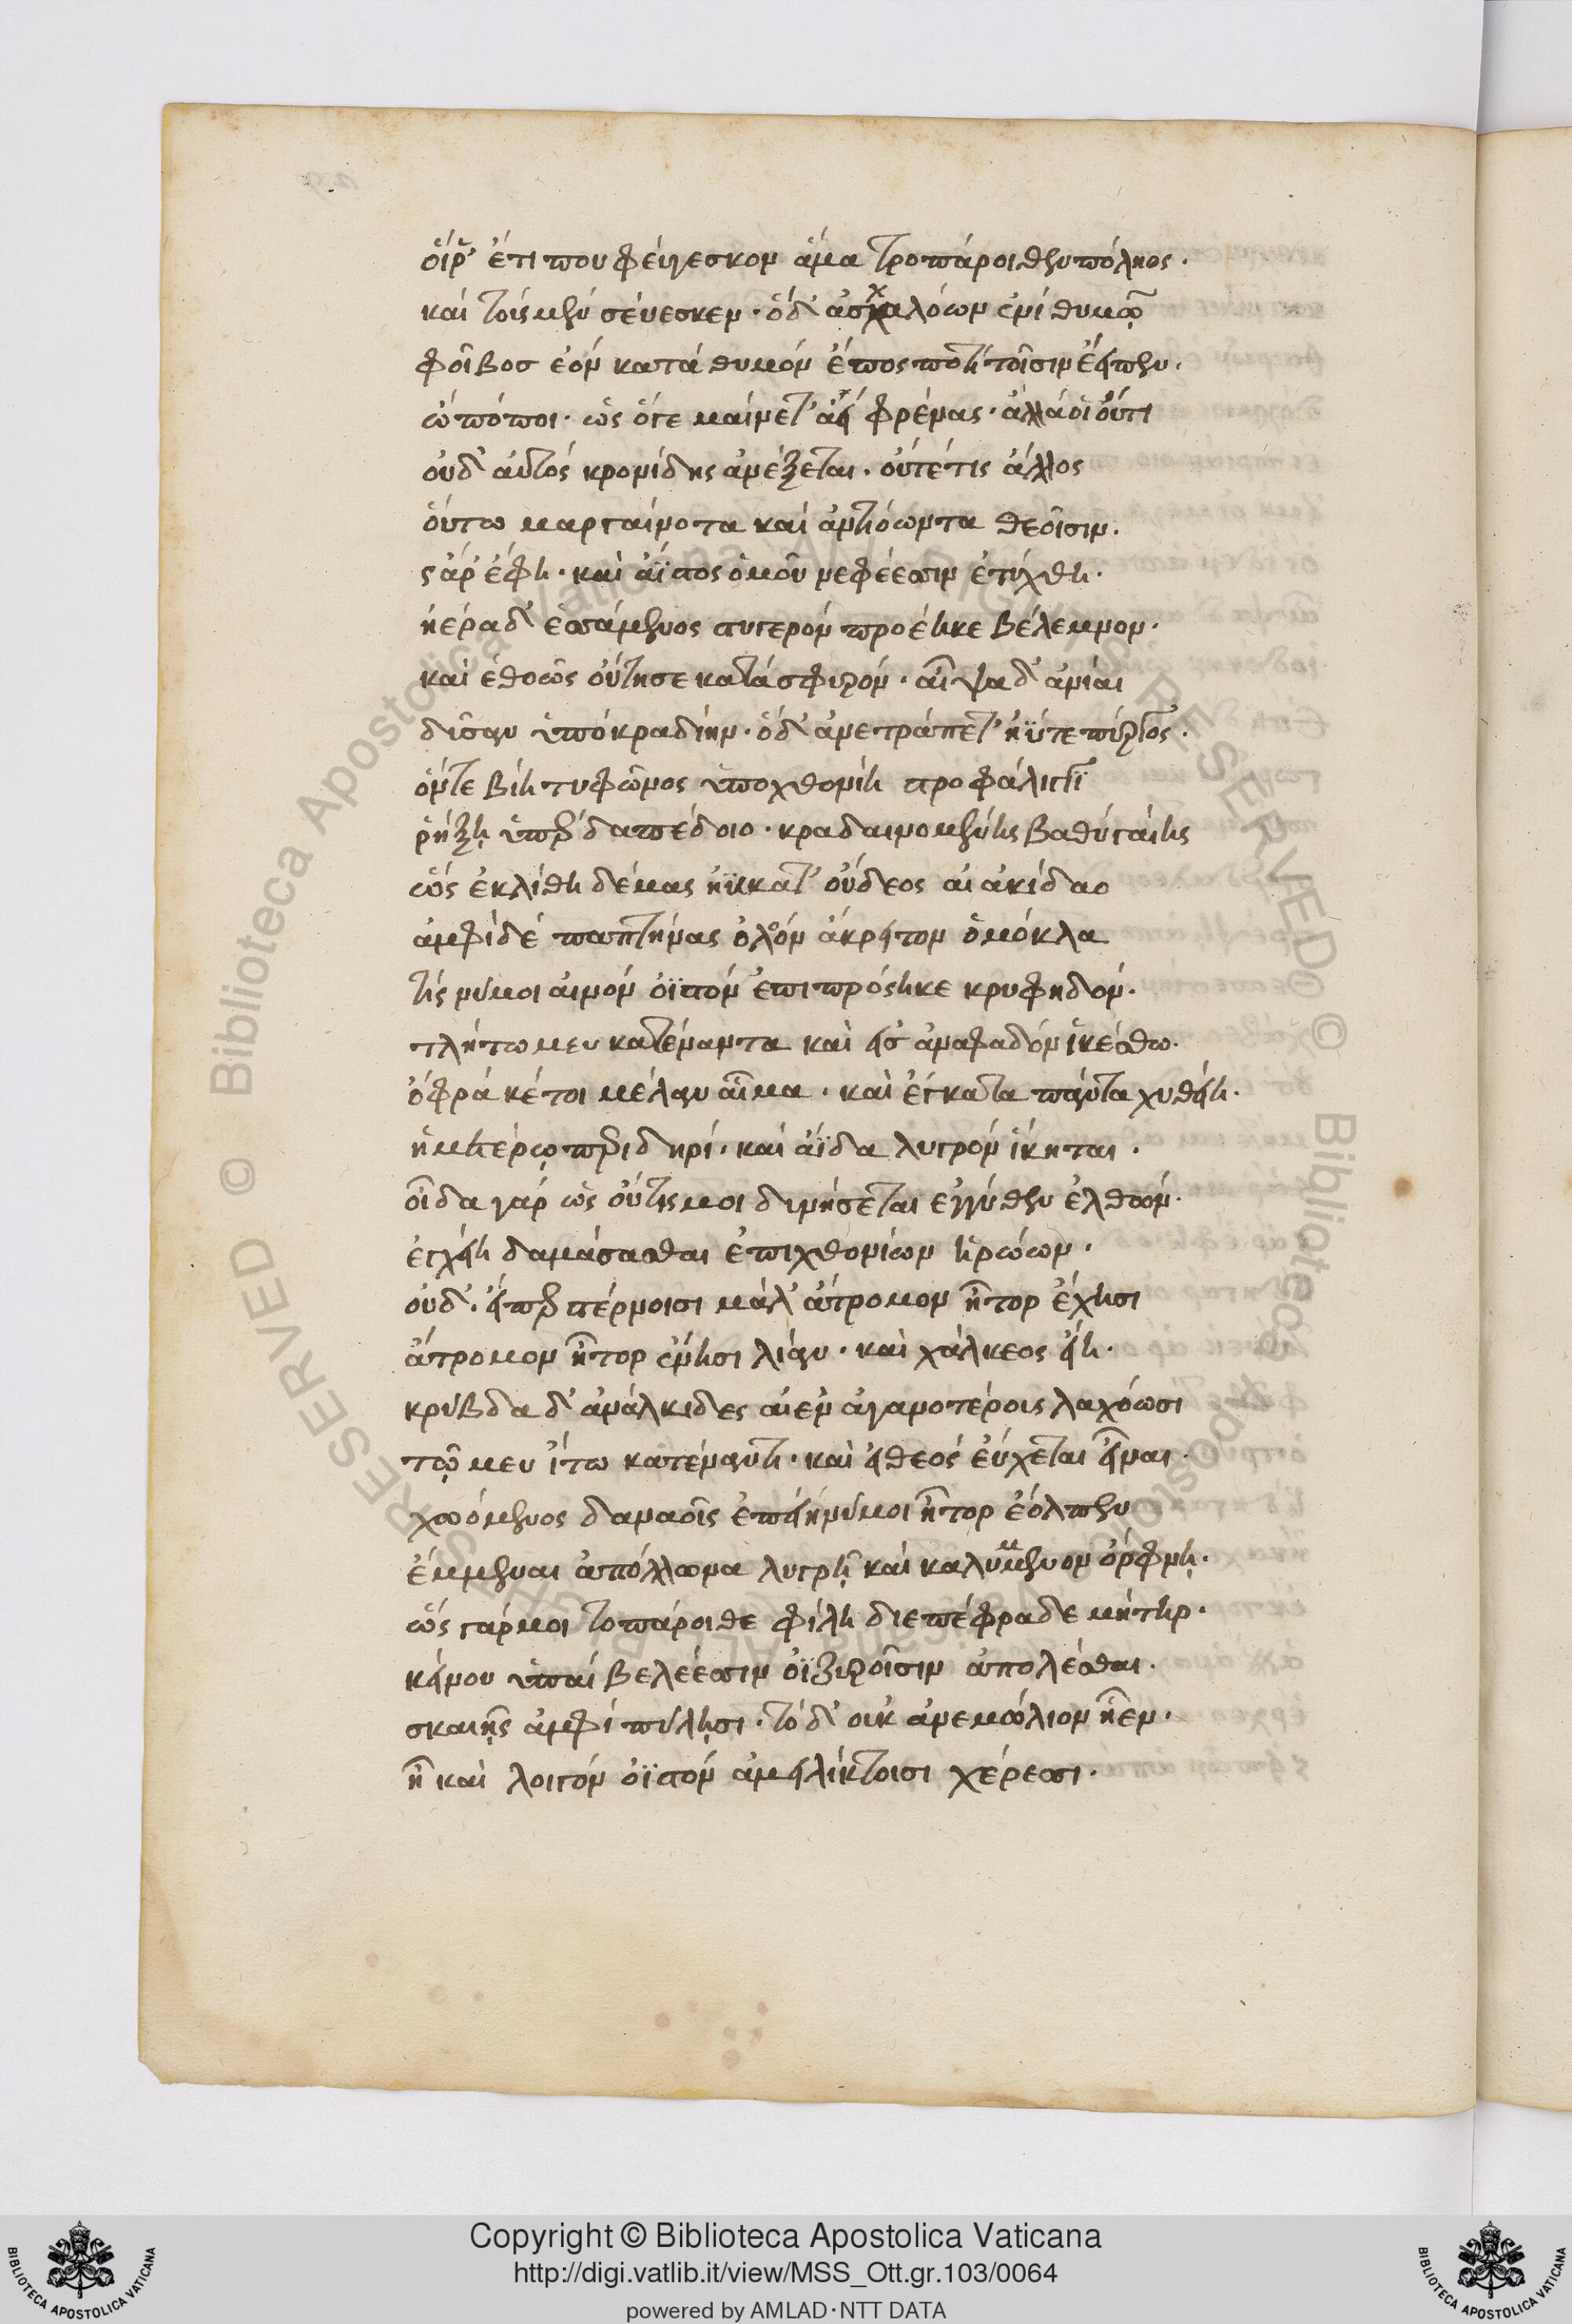 οἵ ῥ' ἔτι που φεύγεσκον ἅμα προπάροιθεν πόληος.
καὶ τοὺς μὲν σεύεσκεν. ὁ δ' ἀσχαλόων ἐνὶ θυμῷ
φοῖβος ἑὸν κατὰ θυμὸν ἔπος ποτὶ τοῖσιν ἔειπεν.
ὦ πόποι. ὡς ὅγε μαίνετ' ἀεὶ φρένας. ἀλλὰ οἱ οὔτι
οὐδ' αὐτὸς κρονίδης ἀνέξεται. οὔτέ τις ἄλλος
οὕτω μαργαίνοτα καὶ ἀντιόωντα θεοῖσιν.
ς ἄρ' ἔφη. καὶ ἄϊστος ὁμοῦ νεφέεσσιν ἐτύχθη.
ἠέρα δ' ἑσσάμενος στυγερὸν προέηκε βέλεμνον.
καὶ ἑ θοῶς οὔτησε κατὰ σφυρόν. αἶψα δ' ἀνίαι
δῦσαν ὑπὸ κραδίην. ὁ δ' ἀνετράπετ' ἠΰτε πύργος.
ὅντε βίη τυφῶνος ὑποχθονίη στροφάλιγγι
ῥήξῃ ὑπὲρ δαπέδοιο. κραδαινομένης βαθὺ γαίης
ὣς ἐκλίθη δέμας ἠῢ κατ' οὔδεος αἰακίδαο
ἀμφὶ δὲ παπτήνας ὀλοὸν ἄκρατον ὁμόκλα
τίς νύ μοι αἰνὸν ὀϊστὸν ἐπιπροέηκε κρυφηδόν.
τλήτω μευ κατέναντα καὶ εἰς ἀναφαδὸν ἱκέσθω.
ὄφρά κέ τοι μέλαν αἷμα. καὶ ἔγκατα πάντα χυθείη.
ἡμετέρῳ περὶ δηρί. καὶ ἄϊδα λυγρὸν ἵκηται.
οἶδα γὰρ ὡς οὔτις μοι δυνήσεται ἐγγύθεν ἐλθών.
ἐγχείη δαμάσασθαι ἐπιχθονίων ἡρώων.
οὐδ'. εἴπερ στέρνοισι μάλ' ἄτρομον ἦτορ ἔχησι
ἄτρομον ἦτορ ἔνησι λίαν. καὶ χάλκεος εἴη.
κρύβδα δ' ἀνάλκιδες αἰὲν ἀγαυοτέροις λαχόωσι
τῷ μευ ἴτω κατέναντι. καὶ εἰ θεὸς εὔχεται εἶναι.
χωόμενος δαναοῖς ἐπειὴ νύ μοι ἦτορ ἔολπεν
ἔμμεναι ἀπόλλωνα λυγρῇ κεκαλυμμένον ὄρφνῃ.
ὣς γάρ μοι τοπάροιθε φίλη διεπέφραδε μήτηρ.
κείνου ὑπαὶ βελέεσσιν ὀϊζυροῖσιν ἀπολέσθαι.
σκαιῇς ἀμφὶ πύλῃσι. τὸ δ' οὐκ ἀνεμώλιον ἦεν.
ἦ καὶ λοιγὸν ὀϊστὸν ἀμειλίκτοισι χέρεσσι.
Copyright © Biblioteca Apostolica Vaticana
http://digi.vatlib.it/view/MSS_Ott.gr.103/0064
powered by AMLAD·NTT DATA